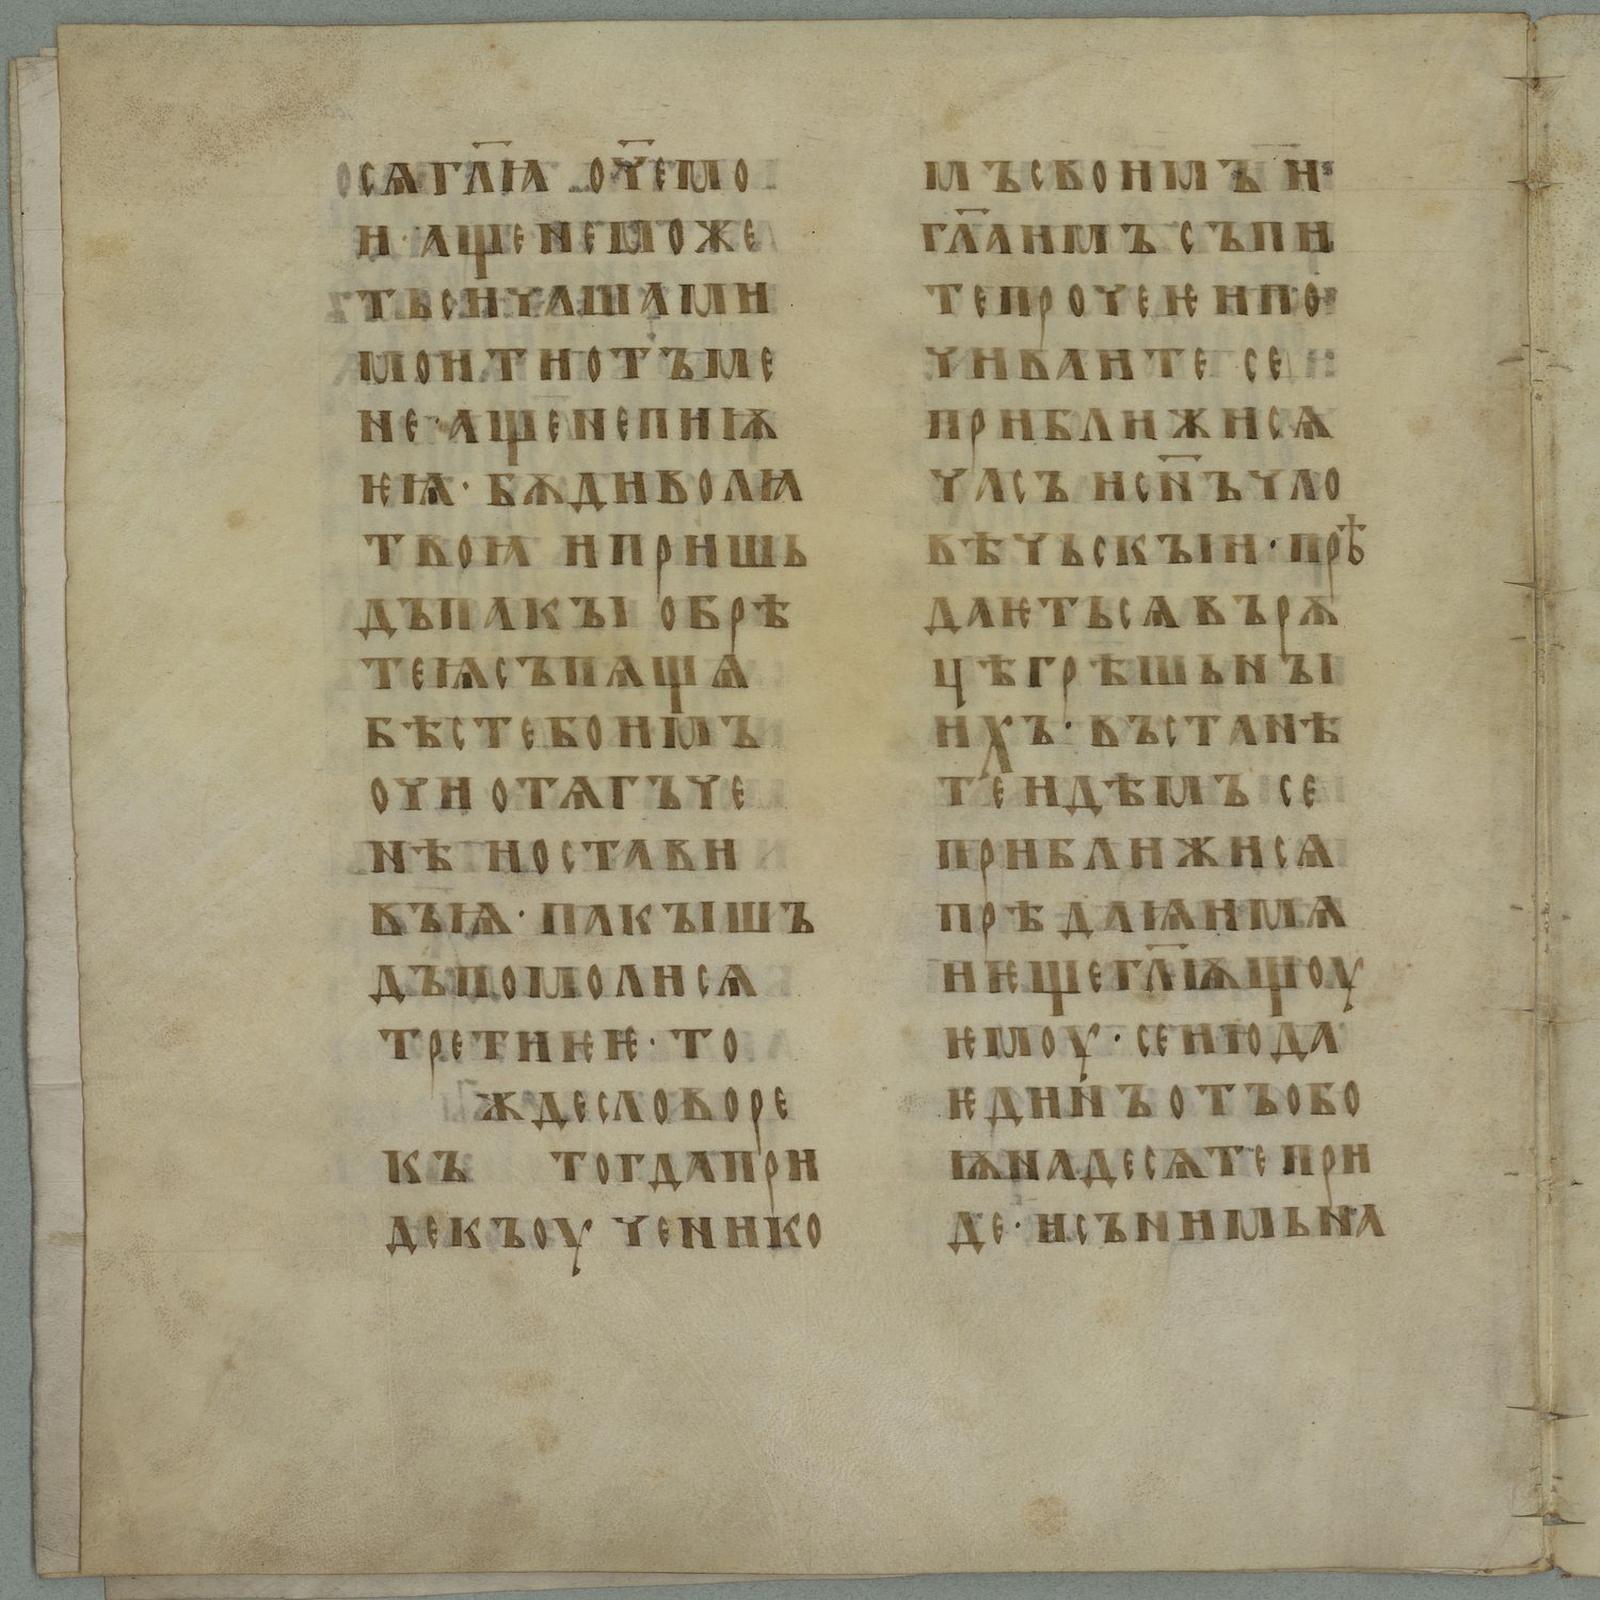 осѧ гл҃ꙗ оч҃емо
и · аще не може
ть си чаша ми
мо ити отъ ме
не · аще не пиѭ
ѥѩ · бѫди волꙗ
твоꙗ и пришь
дъ пакы обрѣ
те ѩ съпѧща
бѣсте бо имъ
очи отѧгъче
нѣ и остави
въ ѩ · пакы шъ
дъ помоли сѧ
третиѥѥ · то
жде слово ре
къ тогда при
де къ оученико
мъ своимъ и
гл҃а имъ съпи
те прочеѥ и по
чиваите се
приближи сѧ
часъ и сн҃ъ чло
вѣчьскыи · прѣ
даѥть сѧ въ рѫ
цѣ грѣшьны
ихъ · въстанѣ
те идѣмъ се
приближи сѧ
прѣдаѩи мѧ
и ѥще гл҃ѭщоу
ѥмоу · се июда
ѥдинъ отъ обо
ѭ на десѧте при
де · и съ нимь на